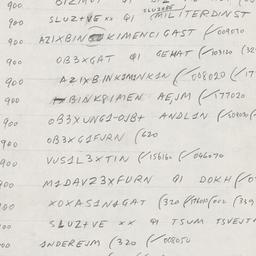 900
SLUZ+VE
900 SLUZ+VE xx 91 (MILITERDINST
900 AZIXBIN KIMENCIGAST (✓009030
900 OB3XGAT 91 GEHAT (✓103120 (32
900 AZIXBINKIMINKIN (✓08020 (✓17
900 BINKPIMEN AEJM (✓177020
900 OB3XUNG1-OJB+ ANDL1N
900 OB3XG1FURN (620
900 VUS1L3XTIN (✓156160 (✓046070
900 M1DAVZ3XFURN 91 DOKH (✓0
900 XOXAS1N1GAT (320
900 SLUZ+VE xx 91 TSUM TSVEJT
900 ANDEREJM (320 (✓008050
(✓059